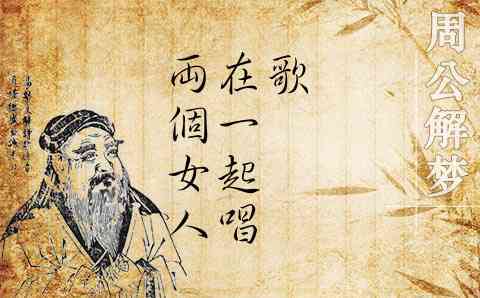 周公解梦
兩個女人
在一起唱
歌